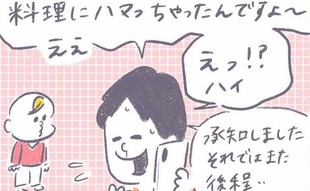 料理にハマっちゃったんですよ～
ええ
えっ!?
ハイ
承知しました
それではまた
後程…